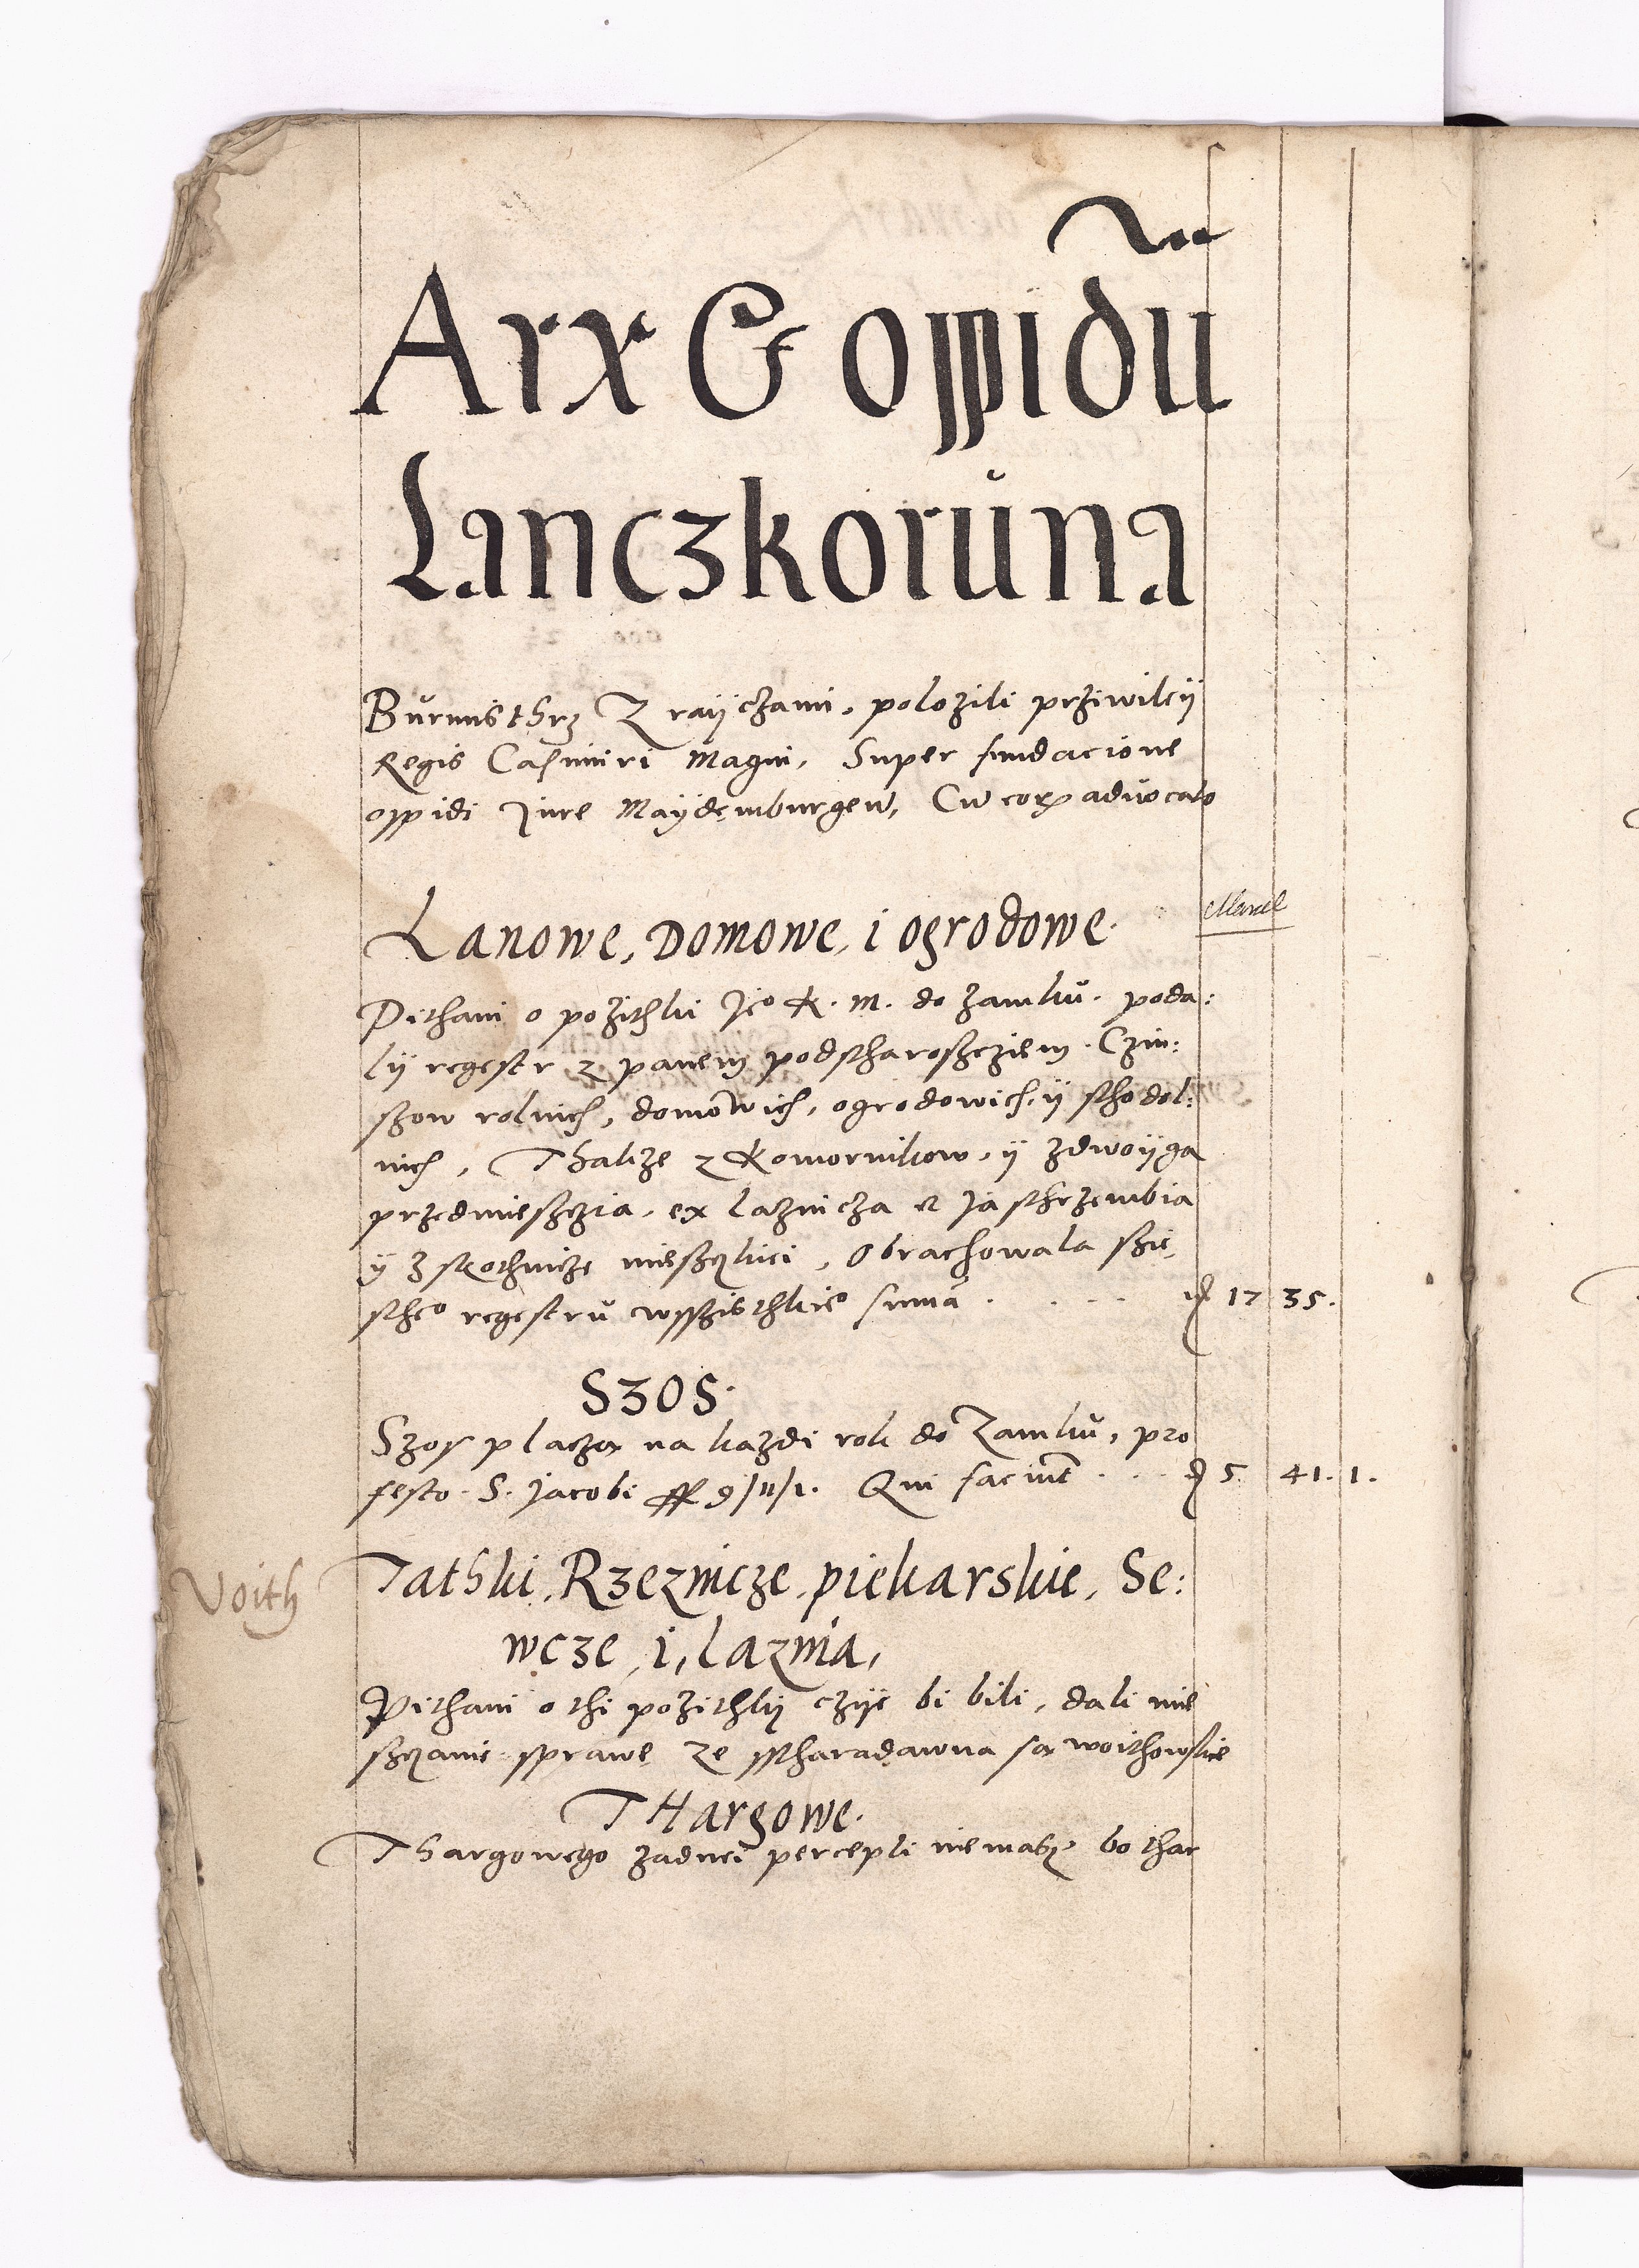 Arx & oppidũ
Lanczkorŭna
Bŭrmisthrz Z raÿczami, polozili prziwileÿ
Regis Casimiri Magni, Super fundacione
oppidi Jure Maÿdemburgeñ, Cũ eorʒ aduocato
Lanowe, Domowe, i ogrodowe.
Pithani o pozithki Jeº K. M. do Zamkŭ. poda:
lÿ regestr z panem podstharoszcziem. Czin:
szow rolnich, domowich, ogrodowich, ÿ schodol:
nich, Thakze z Komornikow, ÿ zdwoÿga
przedmieszczia, ex laznicza et Jastrzembia
ÿ miesczkiei, Obrachowala szie,
stheº regestrŭ wsszisthkieº suma . . . . . 17 35.
SZOS.
Szos placza na kazdi rok do Zamkŭ, pro
festo S. Jacobi 9/11/1. Qui faciunt . . . 5 41. 1.
Voith
Iathki, Rzeznicze, piekarskie, Se:
wcze, i, laznia,
Pithani o thi pozithkÿ czÿe bi bili, dali mie
sczanie sprawe ze sstharadawna sa woithowskie
THargowe.
Thargowego zadnei percepti niemasz bo thar